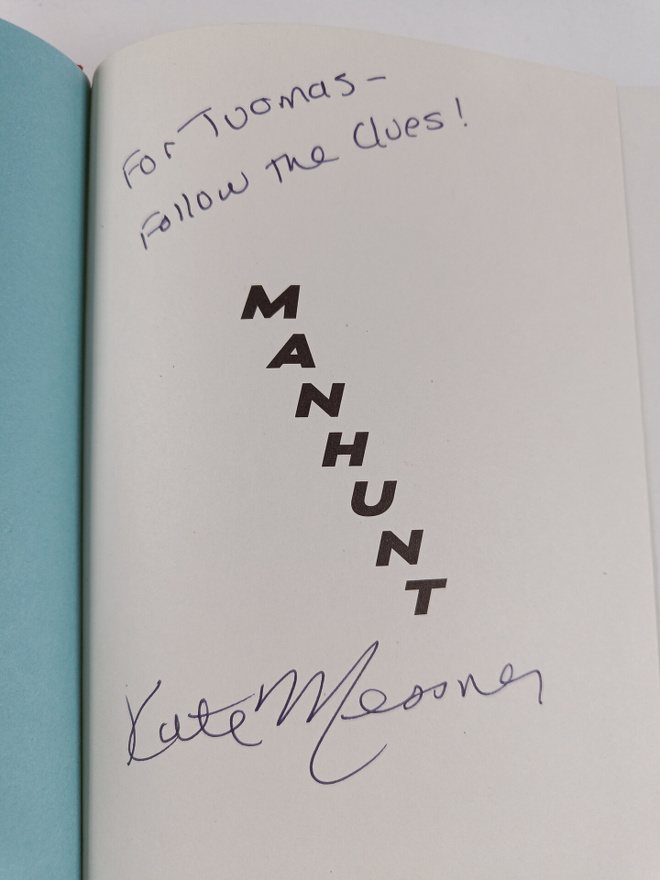 For Tuomas-
Follow the Clues!
MANHUNT
Kate Messner